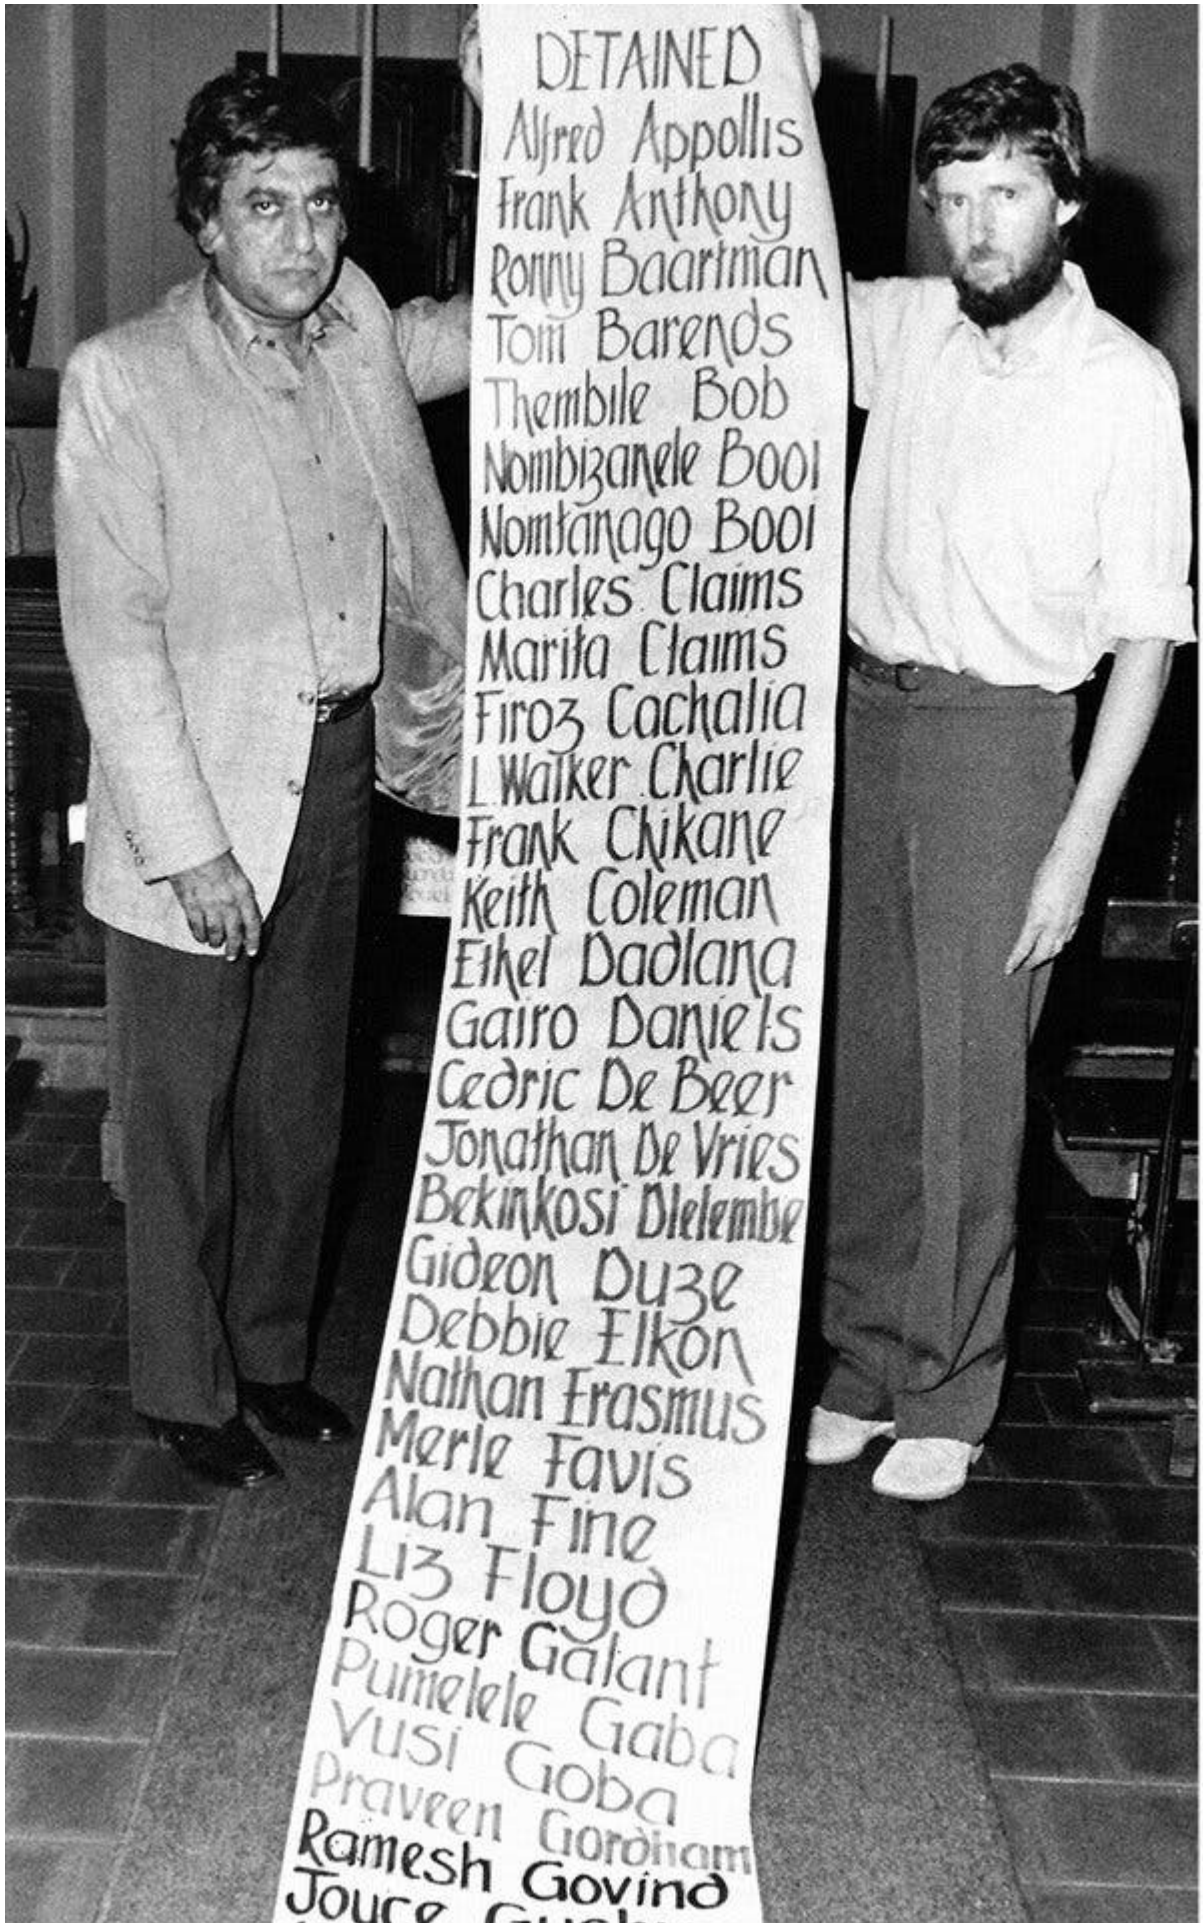 DETAINED
Alfred Appollis
Frank Anthony
Ronny Baartman
Tom Barends
Thembile Bob
Nombizanele Booi
Nomtanago Booi
Charles Claims
Marita Claims
Firoz Cachalia
L. Walker Charlie
Frank Chikane
Keith Coleman
Ethel Dadlana
Gairo Daniels
Cedric De Beer
Jonathan De Vries
Bekinkosi Dlelembe
Gideon Duze
Debbie Elkon
Nathan Erasmus
Merle Favis
Alan Fine
Liz Floyd
Roger Galant
Pumelele Gaba
Vusi Goba
Praveen Gordham
Ramesh Govind
Joyce